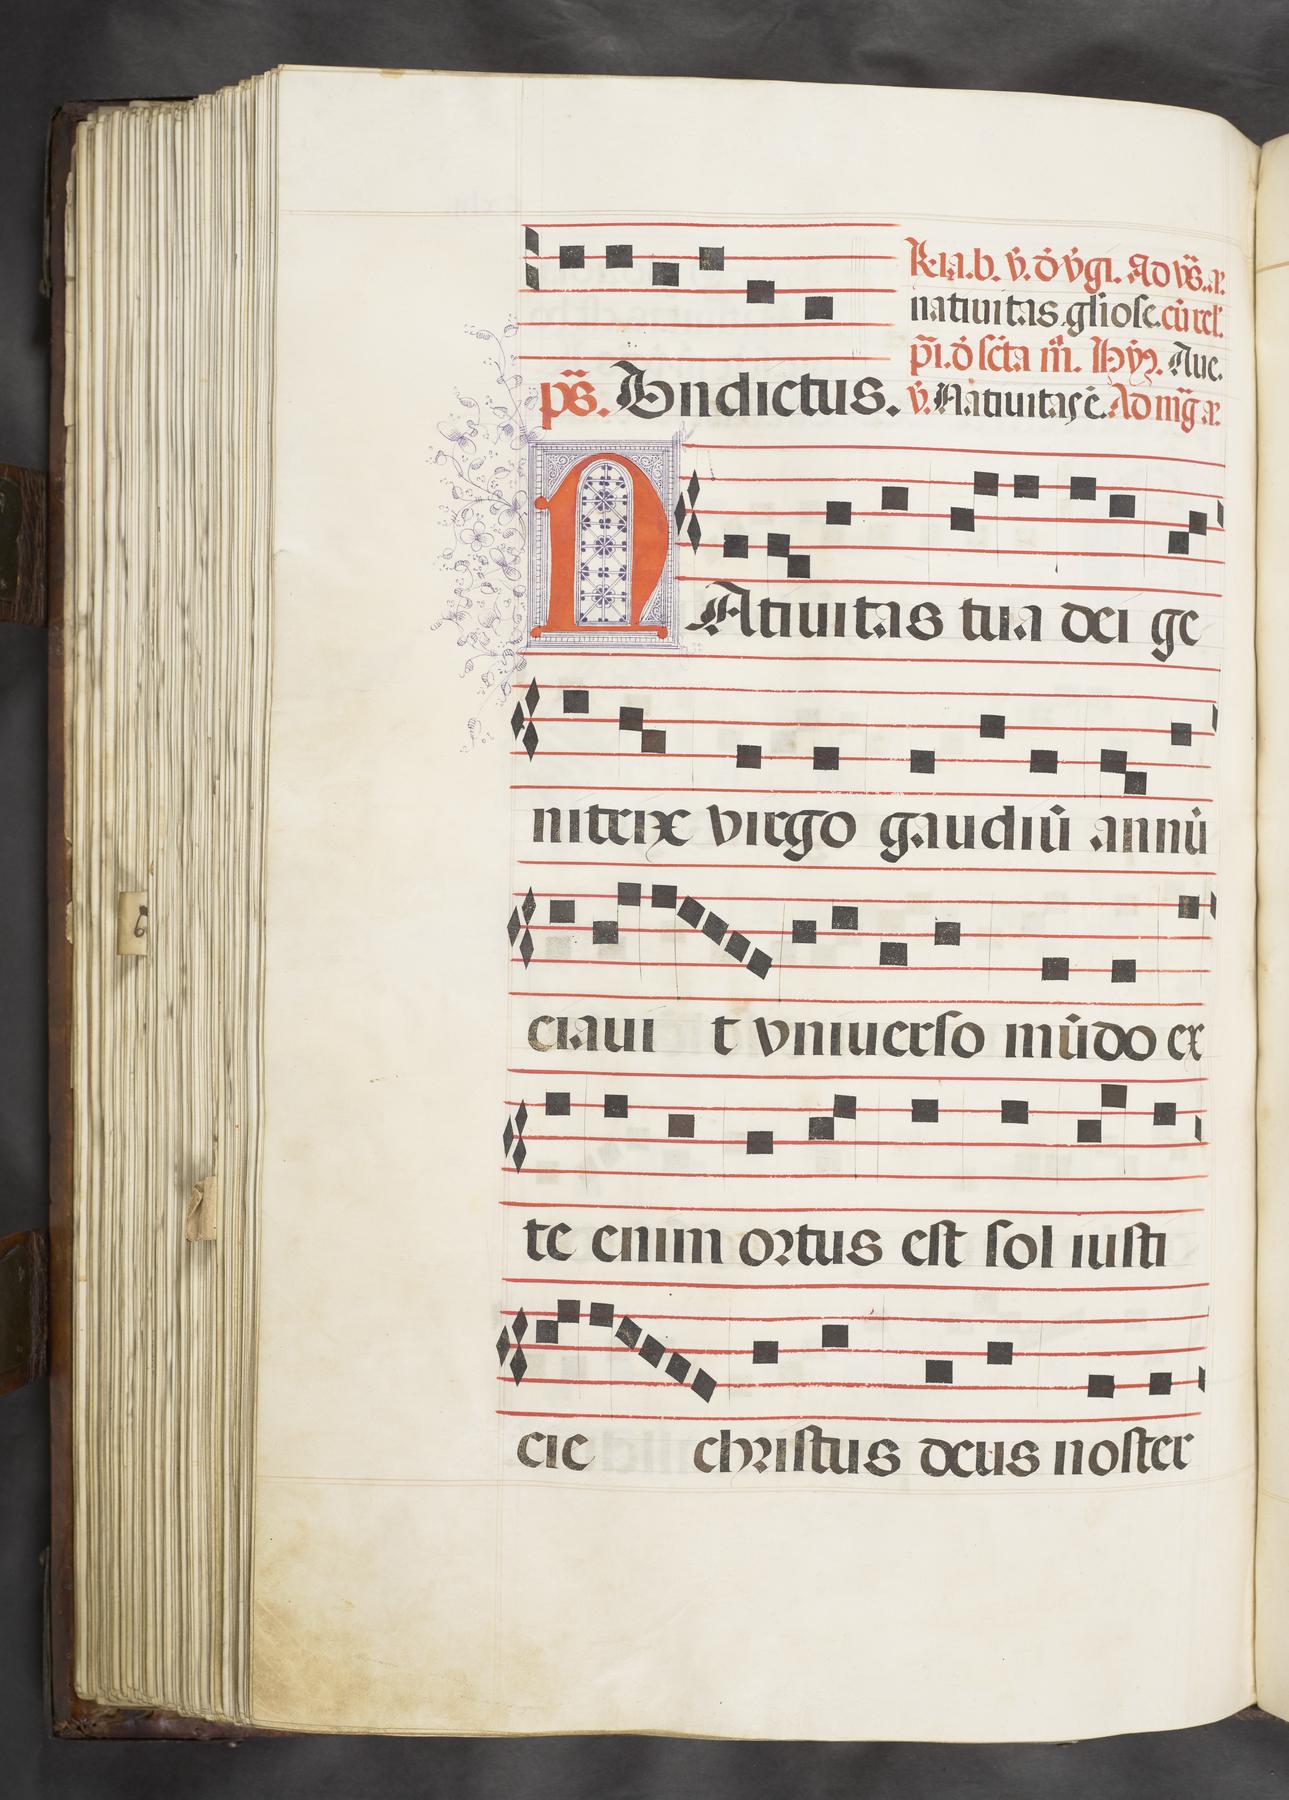 k̃ıa.b. v̇. ḋ v̇gı. Ad vs̃. a᷑.
natiuitas gliose. cū rel'.
pı̃. ḋ sc̃ta m̃. Hỹ. Aue.
ps̃. Bndictus. v̇. Natiuitas ē. Ad mg̃ a᷑.
NAtiuitas tua dei ge
nitrix virgo gaudiū annū
ciaui t vniuerso mūdo ex
te enim ortus est sol iusti
cie christus deus noster
6